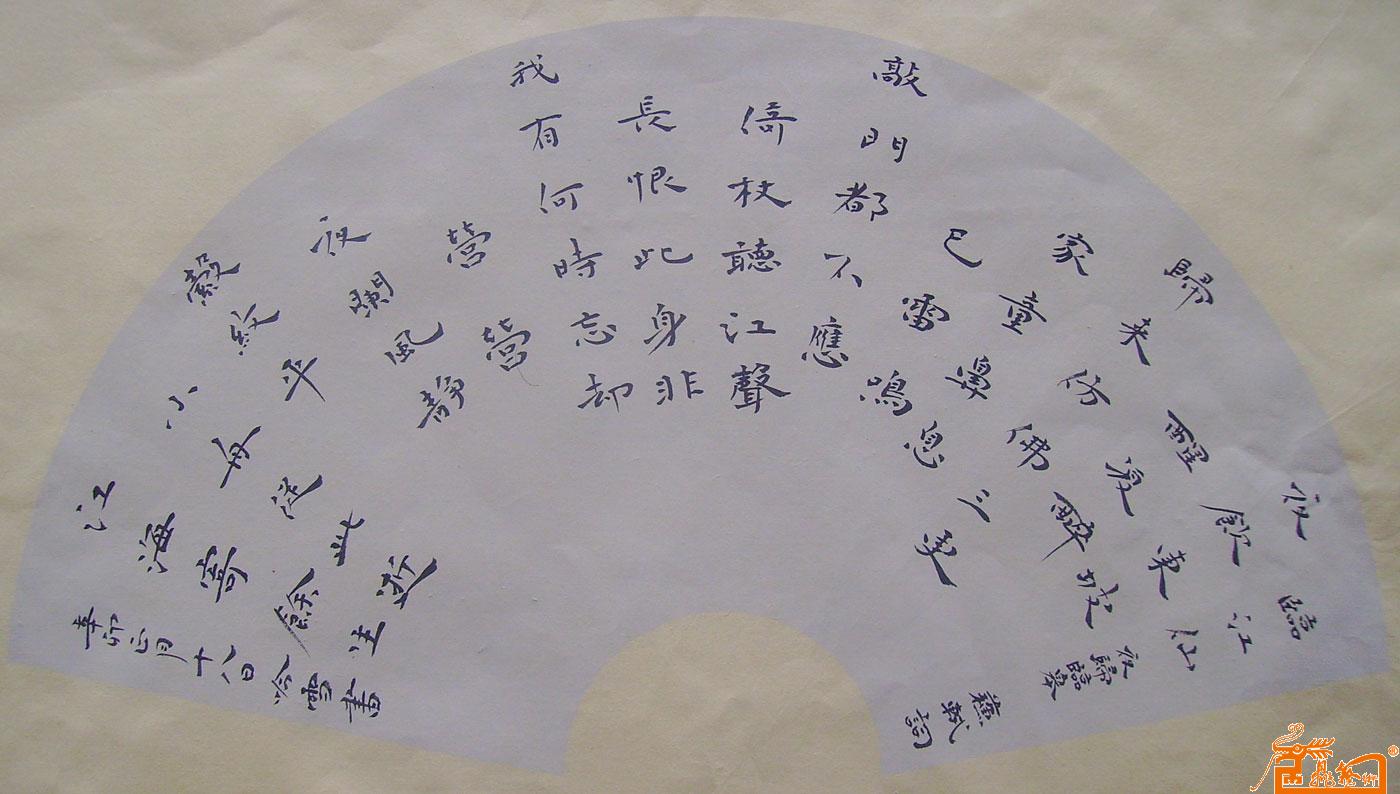 臨江仙 夜歸臨皋
蘇軾詞
夜飲東坡
醒復醉
歸来仿佛三更
家童鼻息
已雷鳴
敲門都不應
倚杖聽江聲
長恨此身非
我有何時忘却
營營
夜闌風靜
縠紋平
小舟從此逝
江海寄餘生
辛卯正月十八日吟雪書